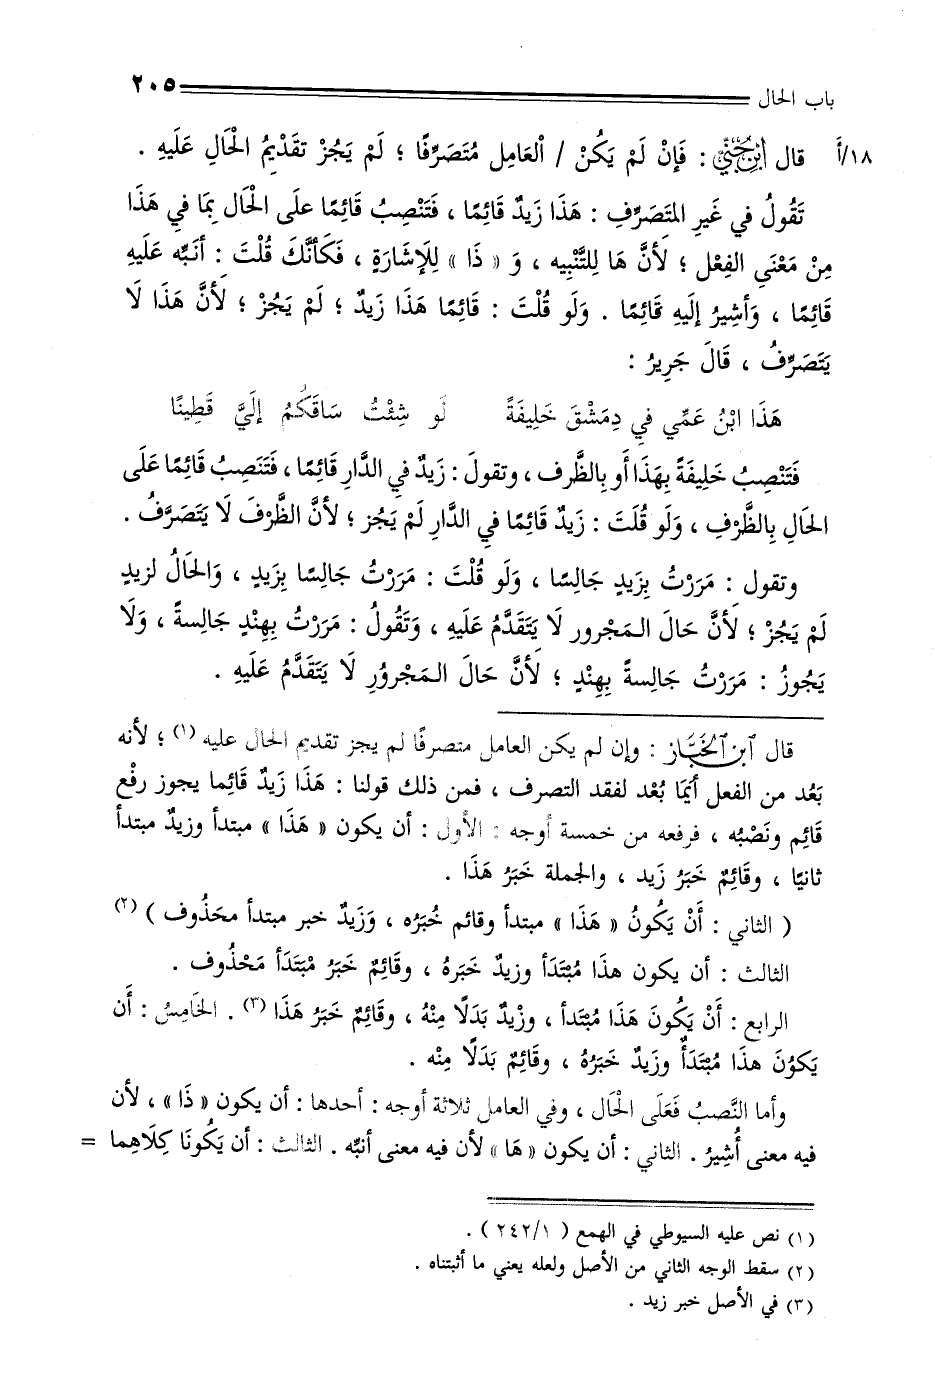 باب الحال ٢٠٥
١٨/أ قال ابن جني : فَإنْ لَمْ يَكُنْ / ألعَامِل مُتَصَرِّفًا ؛ لَمْ يَجُز تقدِيمُ الْحَالِ عَلَيهِ .
تَقُولُ في غَيرِ المتَصَرِّفِ : هَذَا زَيدٌ قَائِمًا ، فَتَنْصِبُ قَائِمًا علَى الْحَال بِمَا فِي هَذَا
مِنْ مَعْنَى الفِعْل ؛ لأنَّ هَا لِلتَّنْبِيه ، وَ « ذَا » لِلْإشَارَةِ ، فَكَأنَّكَ قُلْتَ : أنَبِّه عَلَيهِ
قَائِمًا ، وَأشِيرُ إلَيهِ قَائِمًا . وَلَو قُلْتَ : قَائِمًا هَذَا زَيدٌ ؛ لَمْ يَجُزْ ؛ لأنَّ هَذَا لَا
يَتَصَرَّفُ ، قَالَ جَرِيرُ :
هَذَا ابْنُ عَمِّي في دِمَشْقَ خَلِيفَةً لَو شِئْتُ سَاقَكُمُ إلَيَّ قَطِينًا
فَتَنْصِبُ خَلِيفَةً بِهَذَا أو بِالظَّرف ، وتقولَ : زَيدٌ في الدَّارِ قَائِمًا ، فَتَنصِبُ قَائِمًا عَلَى
الحَالِ بِالظَّرْفِ ، وَلَو قُلتَ : زَيدٌ قَائِمًا في الدَّارِ لَمْ يَجُز ؛ لأنَّ الظَّرْفَ لَا يَتَصَرَّفُ .
وتقول : مَرَرْتُ بِزَيدٍ جَالِسًا ، وَلَو قُلْتَ : مَرَرْتُ جَالِسًا بِزَيدٍ ، وَالحَالُ لزيدٍ
لَمْ يَجُزْ ؛ لأنَّ حَالَ المَجْرور لَا يَتَقَدَّمُ عَلَيهِ ، وَتَقُولُ : مَرَرْتُ بِهِنْدٍ جَالِسةً ، وَلَا
يَجُوزُ : مَرَرْتُ جَالِسةً بِهِنْدٍ ؛ لأنَّ حَالَ المَجْرورِ لَا يَتَقَدَّمُ عَلَيهِ .
قال ابن الخباز : وإن لم يكن العامل متصرفًا لم يجز تقديم الحال عليه (١) ؛ لأنه
بَعُد من الفعل أيَمَا بُعْد لفقد التصرف ، فمن ذلك قولنا : هَذَا زَيدٌ قَائِما يجوز رفْع
قَائِم ونَصْبُه ، فرفعه من خمسة أوجه : الأول : أن يكون « هَذَا » مبتدأ وزيدٌ مبتدأ
ثانيًا ، وقَائِمٌ خَبَرُ زَيد ، والجملة خَبَرُ هَذَا .
( الثاني : أَنْ يَكُونُ « هَذَا » مبتدأ وقائم خُبَرُه ، وَزَيدٌ خبر مبتدأ محَذُوف ) (٢)
الثالث : أن يكون هذَا مُبْتَدَأ وزيدٌ خَبَرهُ ، وقَائِمٌ خَبَرُ مْبْتَدَأ مَحْذُوف .
الرابع : أَنْ يَكُونَ هَذَا مُبْتَدأ ، وزيْدٌ بَدَلًا مِنْهُ ، وقَائِمٌ خَبَرُ هَذَا (٣) . الخَامِسُ : أَن
يَكوُنَ هذَا مُبْتَدَأٌ وزَيدٌ خَبَرُهُ ، وقَائِمٌ بَدَلًا مِنْه .
وأما النَّصبُ فَعَلَى الْحَال ، وفي العامل ثلاثة أوجه : أحدها : أن يكون « ذَا » ، لأن
فيه معنى أُشِيرُ . الثاني : أن يكون « هَا » لأن فيه معنى أنبِّه . الثالث : أن يَكُونَا كِلَاهِما =
(١) نص عليه السيوطي في الهمع ( ٢٤٢/١ ) .
(٢) سقط الوجه الثاني من الأصل ولعله يعني ما أثبتناه .
(٣) في الأصل خبر زيد .